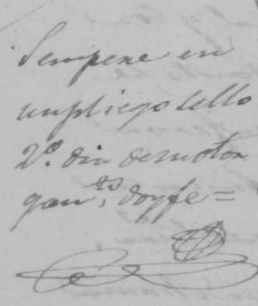 Sempere en
un pliego sello
2º. dia de su otor
gam.to, doy fe =